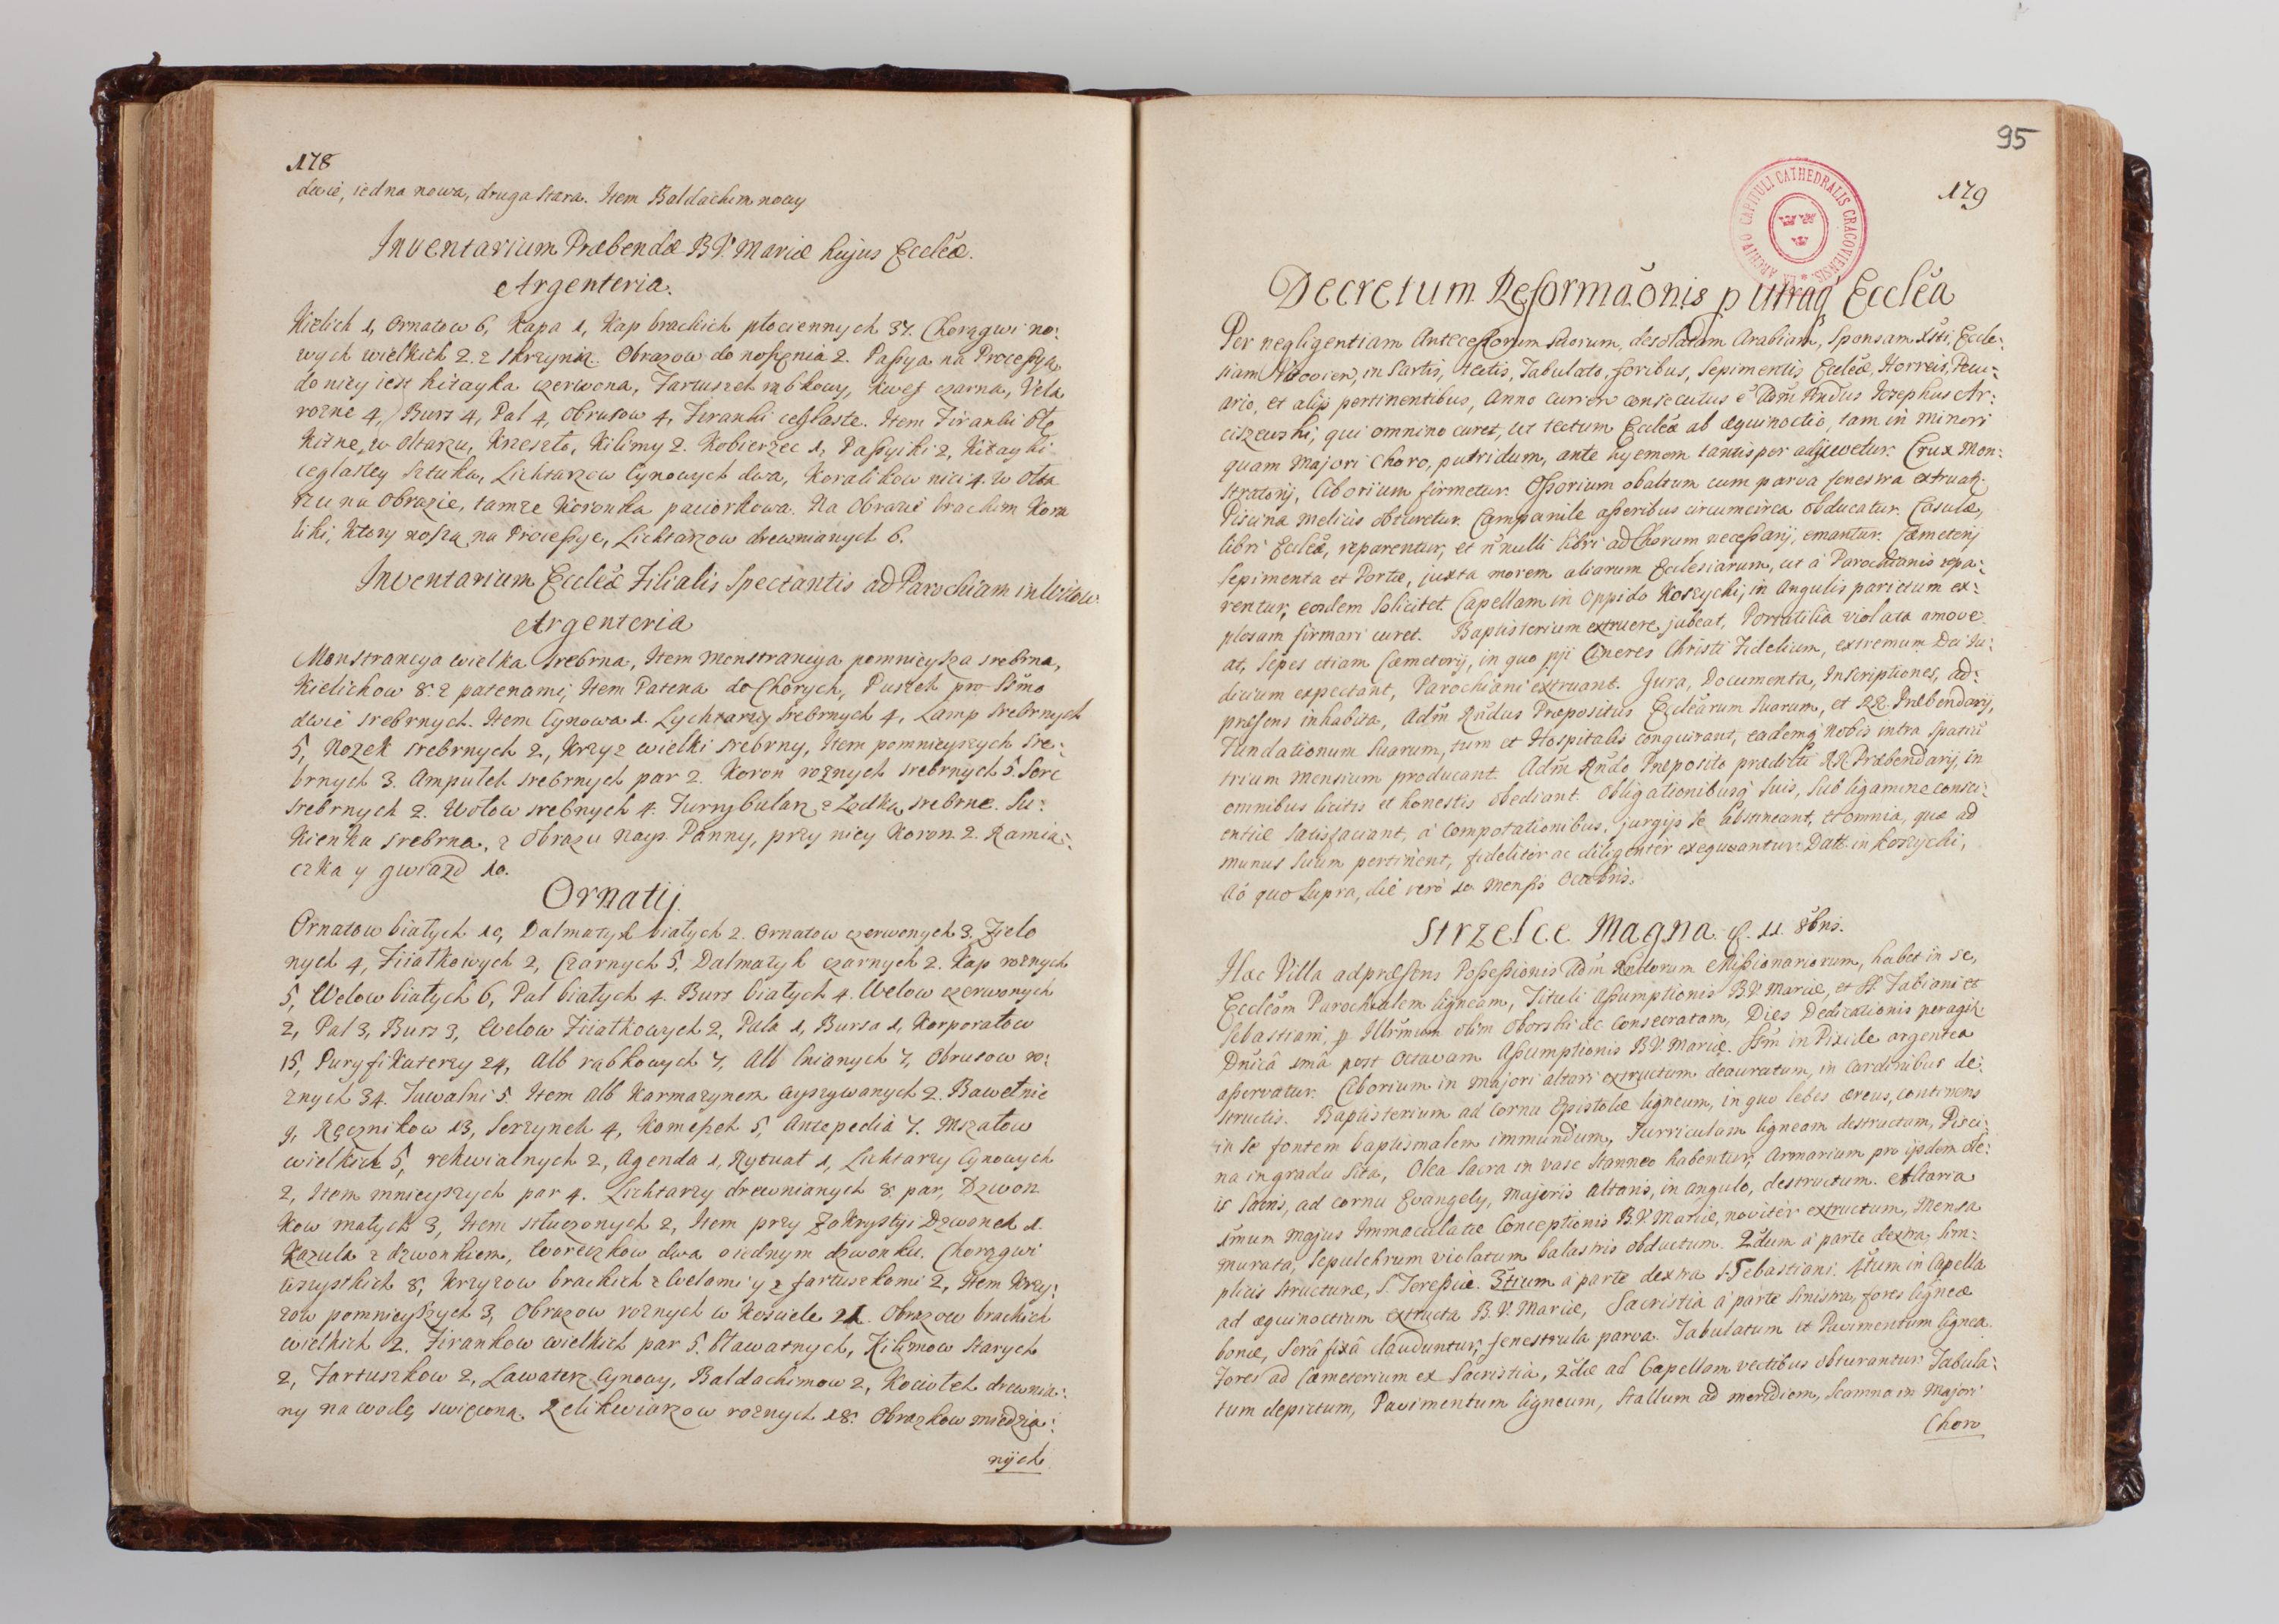 178
dwie, iedna nowa, druga stara. Item Baldachim nowy
Inventarium Præbendæ B.V. Mariæ hujus Eccleæ.
Argenteria.
Kielich 1, Ornatow 6, Kapa 1, Kap brackich płociennych 37. Chorągwi no:
wych wielkich 2. z skrzynią. Obrazow do noszęnia 2. Paßya na Proceßyą
do niey iest kitayka czerwona, Fartuszek rąbkowy, Kweff czarna, Vela
rozne 4, Burs 4, Pal 4, obrusow 4, Firanki ceglaste. Item Firanki błę
kitne, w Ołtarzu, Krzesło, Kilimy 2. Kobierzec 1, Paßyiki 2, Kitayki
ceglastey sztuka, Lichtarzow Cynowych dwa, Koralikow nici 4. w Ołta
rzu na Obrazie, tamze Koronka paciorkowa. Na Obrazie brackim Kora
liki, Ktory noszą na Proceßye, Lichtarzow drewnianych 6.
Inventarium Eccleæ Filialis Spectantis ad Parochiam in Witow.
Argenteria
Monstrancya wielka srebrna, Item Monstrancya pomnieysza srebrna,
Kielichow 8. z patenami, Item Patena do Chorych, Puszek pro SSmo
dwie srebrnych. Item Cynowa 1. Lychtarzy srebrnych 4, Lamp srebrnych
5, Nozek srebrnych 2, Krzyz wielki srebrny, Item pomnieyszych sre:
brnych 3. Ampułek srebrnych par 2. Koron roznych srebrnych 5. Serc
srebrnych 2. Wotow srebnych 4. Turrybularz z Lodką srebrne. Su:
kienka srebrna, z Obrazu Nays. Panny, przy niey Koron 2. Ramia:
czka y gwiazd 10.
Ornatij.
Ornatow białych 10, Dalmatyk białych 2. Ornatow czerwonych 3. Zielo
nych 4, Fiiałkowych 2, Czarnych 5, Dalmatyk czarnych 2. Kap roznych
5, Welow białych 6, Pal białych 4. Burs białych 4. Welow czerwonych
2, Pal 3, Burs 3, Welow Fiiałkowych 2, Pala 1, Bursa 1, Korporałow
15, Puryfikaterzy 24, Alb rąbkowych 7, Alb lnianych 7, Obrusow ro:
znych 34. Tuwalni 5. Item Alb Karmazynem wyszywanych 2. Bawełnic
9, Ręcznikow 13, Serzynek 4, Komeßek 5, Antepedia 7. Mszałow
wielkich 5, rekwialnych 2, Agenda 1, Rytuał 1, Lichtarzy Cynowych
2, Item mnieyszych par 4. Lichtarzy drewnianych 8. par, Dzwon
kow małych 3, Item stłuczonych 2, Item przy Zakrystyi Dzwonek 1.
Kazula z dzwonkiem, Woreczkow dwa o iednym dzwonku. Chorągwi
wszystkich 8, Krzyzow brackich z Welami y z fartuszkami 2, Item Krzy:
zow pomnieyszych 3, Obrazow roznych w Kosciele 21. Obrazow brackich
wielkich 2. Firankow wielkich par 5. bławatnych, Kilimow starych
2, Fartuszkow 2, Lawaterz Cynowy, Baldachimow 2, Kociołek drewnia:
ny na wodę swięconą. Relikwiarzow roznych 18. Obrazkow miedzia:
nÿch
95
179
EX ARCHIVO CAPITULI CATHEDRALIS CRACOVIENSIS
Decretum Reformaõnis p utraq Eccleã
Per negligentiam Anteceßorum suorum, desolatam Arabiam, Sponsam Xsti, Eccle:
siam Witovien, in Sartis, tectis, Tabulato, foribus, Sepimentis Eccleæ, Horreis, Pecu:
ario, et alijs pertinentibus, Anno Curren consecutus e Adm Rndus Josephus Ar:
ciszewski, qui omnino curet, ut tectum Eccleæ ab æquinoctio, tam in minori
quam Majori Choro, putridum, ante hyemem tantisper adjuvetur. Crux Mon:
stratorij, Ciborium firmetur. Oßorium obaltum cum parva fenestra extruatr.
Piscina melius obturetur. Campanile aßeribus circumcirca obducatur. Casulæ,
libri Eccleæ, reparentur, et nnulli libri ad Chorum neceßarij, emantur. Cæmeterij
Sepimenta et Portæ, juxta morem aliarum Ecclesiarum, ut à Parochianis repa:
rentur, eosdem solicitet. Capellam in Oppido Koszycki, in Angulis parietum ex:
plosam firmari curet. Baptisterium extruere jubeat, Portatilia violata amove
at, Sepes etiam Cæmeterij, in quo pij Cineres Christi Fidelium, extremum Dei Ju:
dicium expectant, Parochiani extruant. Jura, Documenta, Inscriptiones, ad:
præsens inhabita, Adm Rndus Præpositus Eccleãrum suarum, et RR. Præbendarij,
Fundationum suarum, tum et Hospitalis conquirant, eademq nobis intra spatiũ
trium mensium producant. Adm Rndo Præposito prædicti RR. Præbendarij, in
omnibus licitis et honestis obediant. Obligationibusq suis, sub ligamine consci:
entiæ satisfaciant, à Compotationibus, jurgijs se abstineant, et omnia, quæ ad
munus suum pertinent, fideliter ac diligenter exequantur. Datt. in Koszycki,
Aõ quo supra, die verò 10 Mensis Octobris.
Strzelce Magna. d. 11. 8bris.
Hæc Villa adpræsens Poßeßionis Adm Rndorum Mißionariorum, habet in se,
Eccleãm Parochialem ligneam, Tituli Aßumptionis B.V. Mariæ, et SS. Fabiani et
Sebastiani, p Illrmum olim Oborski &c Consecratam, Dies Dedicationis peragitr
Dnicâ 1mâ post Octavam Aßumptionis B.V. Mariæ. SSm in Pixide argentea
aßervatur. Ciborium in majori altari extructum deauratum, in Cardinibus de:
structis. Baptisterium ad Cornu Epistolæ ligneum, in quo lebes æreus, continens
in se fontem baptismalem immundum, Turriculam ligneam destructam, Pisci:
na in gradu sita, Olea Sacra in vase stanneo habentur, Armarium pro ijsdem Ole:
is Sacris, ad Cornu Evangely, Majoris Altaris, in angulo, destructum. Altaria
1mum Majus Immaculatæ Conceptionis B.V. Mariæ, noviter extructum, Mensa
murata, Sepulchrum violatum balastris obductum. 2dum à parte dextra, Sim:
plicis structuræ, S. Tereßiæ. 3tium à parte dextra S. Sebastiani. 4tum in Capella
ad æquinoctium extructa B.V. Mariæ, Sacristia à parte sinistra, fores ligneæ
bonæ, Serâ fixâ clauduntur, fenestrula parva. Tabulatum et Pavimentum lignea.
Fores ad Cæmeterium ex Sacristia, 2dæ ad Capellam vectibus obturantur. Tabula:
tum depictum, Pavimentum ligneum, Stallum ad meridiem, Scamna in Majori
Choro